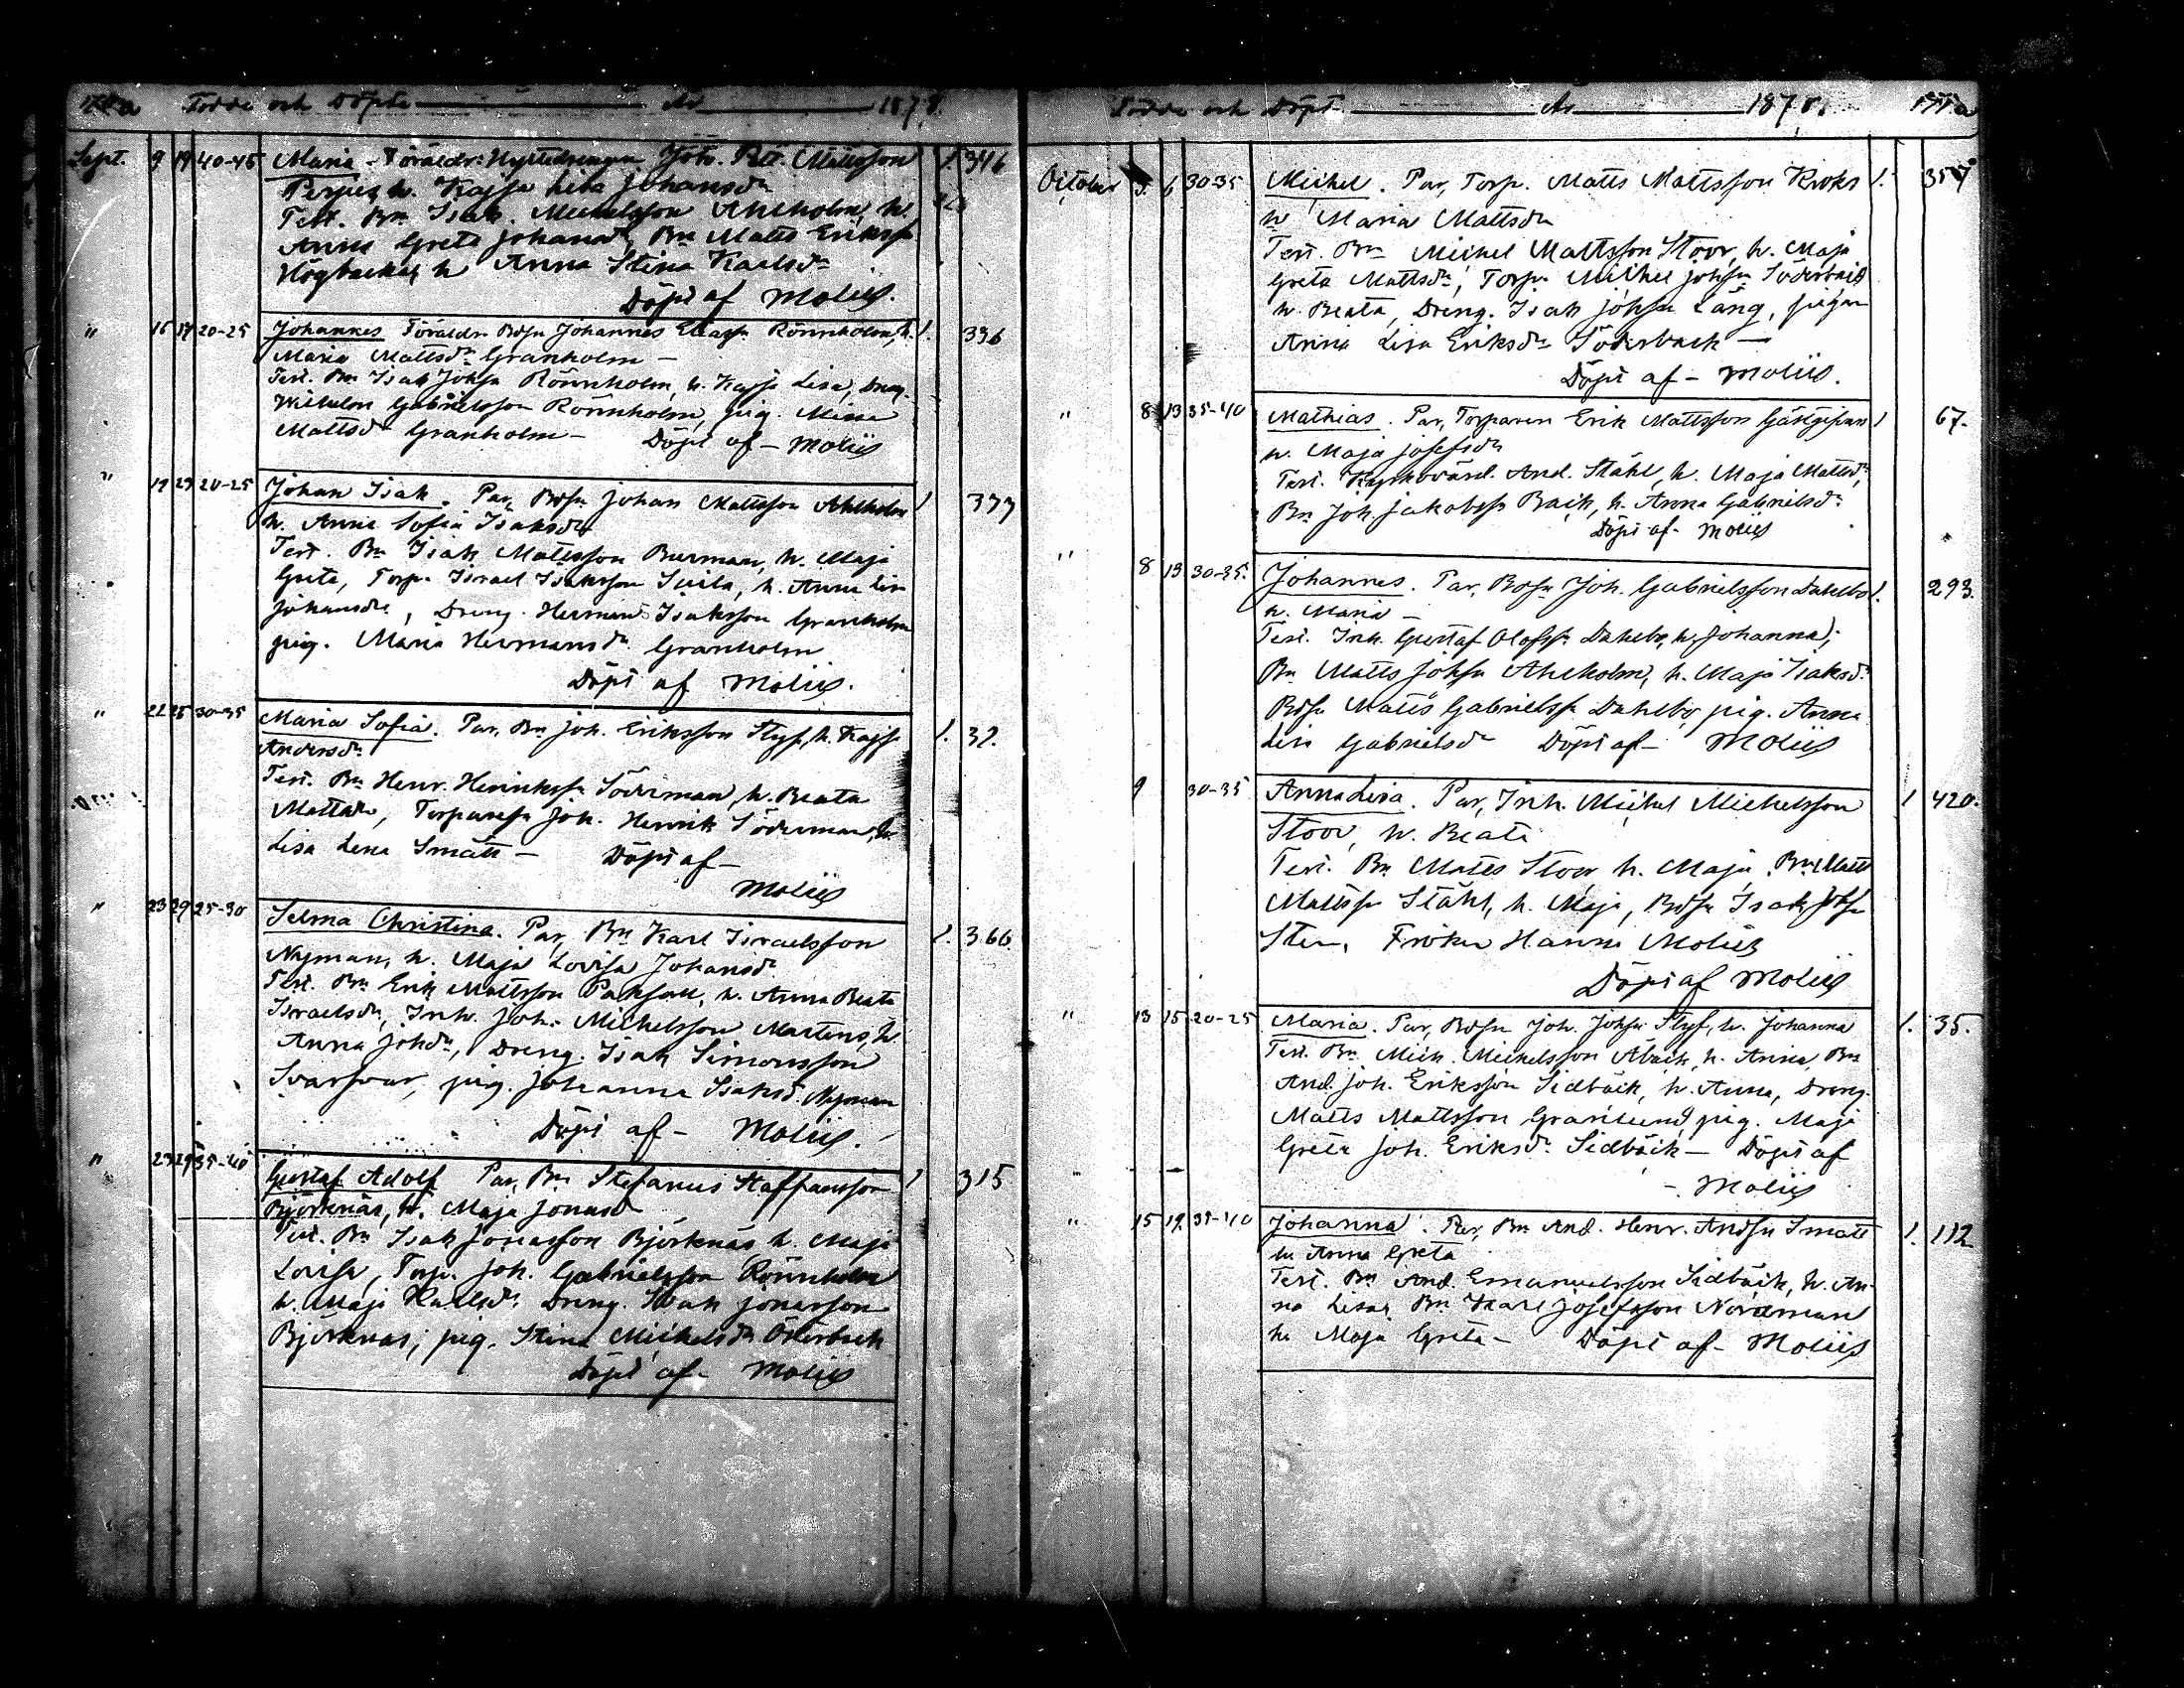 Födde och Döpte År 1878.
Sept. 9 19 40-45 Maria - Föräldr: Hyttedrengen Joh. Petter Mattsson 1. 346
h. Kajsa Lisa Johansdr
Test. Bn Isak Mickelsson Ahlholm, h.
Anna Greta Johansdr, Bn Matts Eriksson
Högbacka, h Anna Stina Karlsdr
Döpt af Moliis.
" 16 17 20-25 Johannes Föräldr Bdsn Johannes Eliass. Rönnholm, h. 1. 336
Maria Mattsdr Granholm —
Test. Bn Isak Johsn Rönnholm, h. Kajsa Lisa, Dreng.
Wilhelm Gabrielsson Rönnholm, pig. Minna
Mattsdr Granholm — Döpt af — Moliis
" 19 23 20-25 Johan Isak. Par, Bdsn Johan Mattsson Ahlholm 1 377
h. Anna Sofia Isaksdr
Test. Bn Isak Mattsson Burman, h. Maja
Greta, Torp. Israel Isaksson Svila, h. Anna Lisa
Johansdr, Dreng. Herman Isaksson Granholm
pig. Maria Hermansdr Granholm
Döpt af Moliis.
" 22 25 30-35 Maria Sofia. Par, Bn Joh. Eriksson Styf, h. Kajsa 1. 32.
Andersdr
Test. Bn Henr. Henrikssn Söderman, h. Beata
Mattsdr, Torparesn Joh. Henrik Söderman, h.
Lisa Lena Smått — Döpt af —
Moliis
" 23 29 25-30 Selma Christina. Par, Bn Karl Israelsson 1. 366
Nyman, h. Maja Lovisa Johansdr
Test. Bn Erik Mattsson h. Anna Beata
Israelsdr, Inh. Joh. Mickelsson Martens, h.
Anna Johdr, Dreng. Isak Simonsson
Svarfvar, pig. Johanna Isaksd. Nyman
Döpt af — Moliis.
" 23 29 35-40 Gustaf Adolf Par, Bn Stefanus Staffansson 1 315
Björknäs, h. Maja Jonasd
Test. Bn Isak Jonasson Björknäs, h. Maja
Lovisa, Torp. Joh. Gabrielsson Rönnholm
h. Maja Karlsdr Dreng. Isak Jonasson
Björknäs, pig. Stina Mickelsdr Österback
Döpt af — Moliis
Födde och Döpt År 1878.
October 5 6 30-35 Michel. Par, Torp. Matts Mattsson Kroks 1. 357
h Maria Mattsdr
Test. Bn Michel Mattsson Stoor, h. Maja
Greta Mattsdr, Torp. Michel Johsn Söderback
h. Beata, Dreng. Isak Johsn Lång, pigan
Anna Lisa Eriksdr Söderback —
Döpt af — Moliis.
" 8 13 35-40 Mathias. Par, Torparen Erik Mattsson Gästgifvars 1 67.
h. Maja Josefsdr
Test. Kyrkovärd. And. Ståhl, h. Maja Mattsdr,
Bn Joh. Jakobssn Back, h. Anna Gabrielsdr
Döpt af — Moliis
" 8 13 30-35. Johannes. Par, Bdsn Joh. Gabrielsson Dahlbo 1. 293.
h. Maria —
Test. Inh. Gustaf Olofssn Dahlbo, h. Johanna,
Bn Matts Johsn Ahlholm, h. Maja Isaksdr
Bdsn Matts Gabrielssn Dahlbo, pig. Anna
Lisa Gabrielsdr Döpt af — Moliis
9 30-35 Anna Lisa. Par, Inh. Michel Michelsson 1 420.
Stoor, h. Beata
Test. Bn Matts Stoor h. Maja, Bn Matts
Mattssn Ståhl, h. Maja, Bdsn Isak Johsn
Sten, Fröken Hanna Moliis
Döpt af Moliis
" 13 15 20-25 Maria. Par, Bdsn Joh. Johsn Styf, h. Johanna 1. 35.
Test. Bn Mich. Michelsson Åback, h. Anna, Bn
And. Joh. Eriksson Sidbäck, h. Anna, Dreng.
Matts Mattsson Granlund, pig. Maja
Greta Joh. Eriksdr Sidbäck — Döpt af
— Moliis
" 15 19 35-40 Johanna. Par, Bn And. Henr. Andsn Smått 1. 112
h. Anna Greta
Test. Bn And. Emanuelsson Sidbäck, h. An-
na Lisa, Bn Karl Josefsson Nordman
h. Maja Greta — Döpt af — Moliis